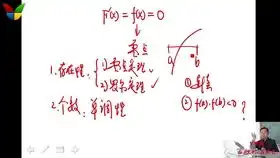 F'(x) = f(x) = 0
零点
1. 存在性 { 1) 零点定理 ✓
2) 罗尔定理 ✓
2. 个数: 单调性
a b
① 连续
② f(a)·f(b)<0 ?